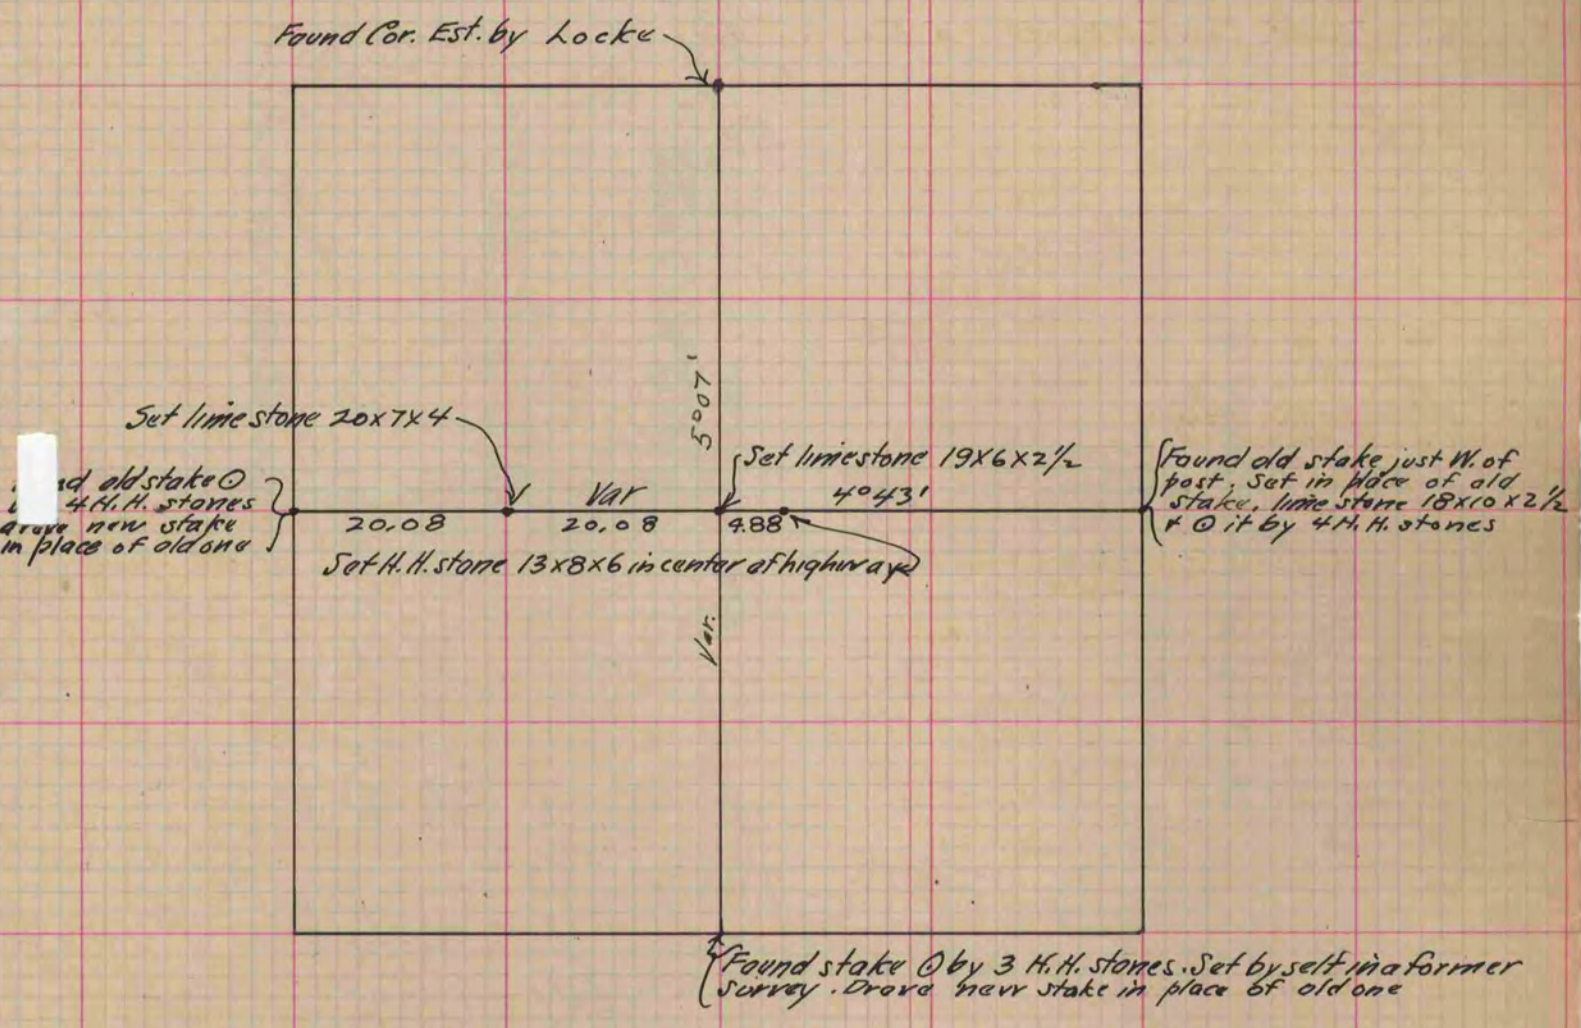 Found Cor. Est. by Locke
5°07'
Set limestone 20x7x4
Set limestone 19x6x2½
old stake ⊙
4 H.H. stones
drove new stake
in place of old one
Var
4°43'
20.08
20.08
4.88
Found old stake just W. of
post. Set in place of old
stake, lime stone 18x10x2½
+ ⊙ it by 4 H.H. stones
Set H.H. stone 13x8x6 in center of highway
Var.
Found stake ⊙ by 3 H.H. stones. Set by self in a former
Survey. Drove new stake in place of old one